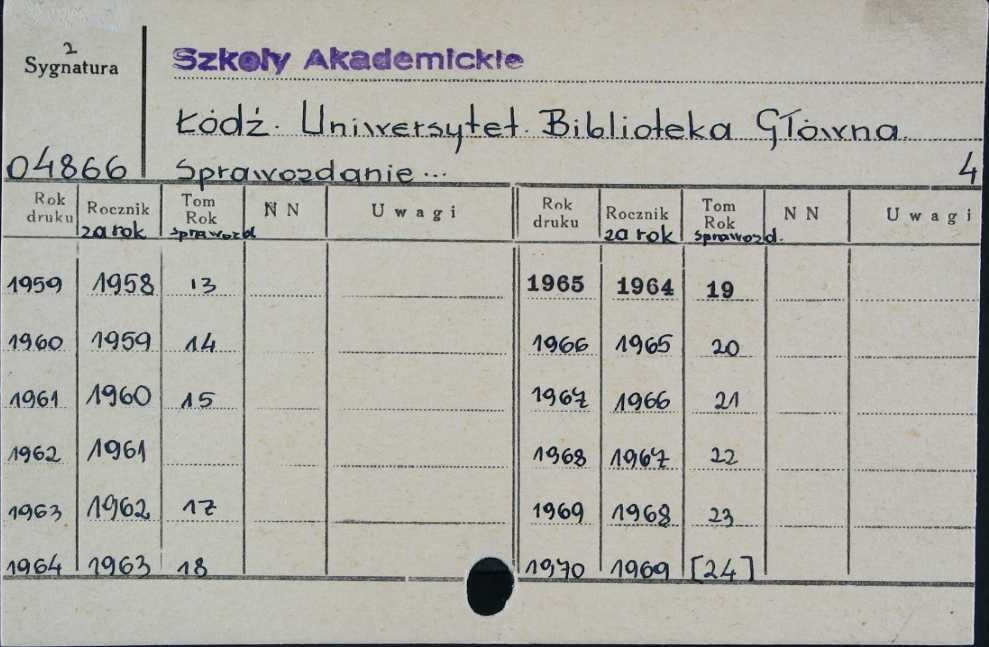 2
Sygnatura
Szkoły Akademickie
Łódź. Uniwersytet. Biblioteka Główna.
04866 Sprawozdanie... 4
Rok druku Rocznik za rok Tom Rok sprawozd N N Uwagi Rok druku Rocznik za rok Tom Rok sprawozd. N N Uwagi
1959 1958 13 1965 1964 19
1960 1959 14 1966 1965 20
1961 1960 15 1967 1966 21
1962 1961 1968 1967 22
1963 1962 17 1969 1968 23
1964 1963 18 1970 1969 [24]